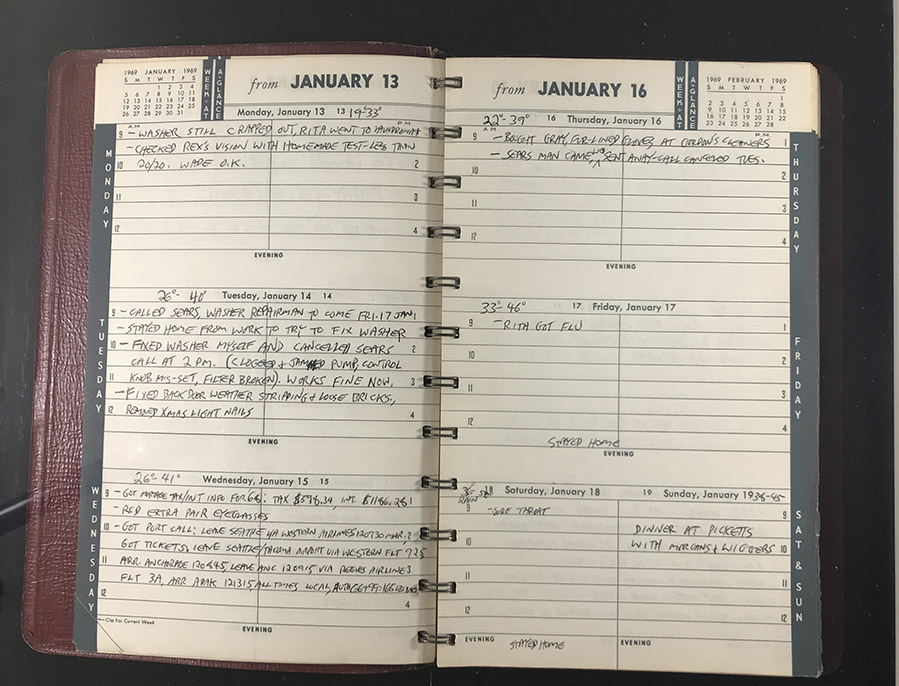 1969 JANUARY 1969
S M T W T F S
1 2 3 4
5 6 7 8 9 10 11
12 13 14 15 16 17 18
19 20 21 22 23 24 25
26 27 28 29 30 31
WEEK-AT
A-GLANCE
from JANUARY 13
Monday, January 13 13 19°-33°
MONDAY
A.M. P.M.
9 - WASHER STILL CRAPPED OUT, RITA WENT TO
- CHECKED REX'S VISION WITH HOMEMADE TEST-LESS THAN
10 20/20. WADE O.K. 2
11 3
12 4
EVENING
26°- 40° Tuesday, January 14 14
TUESDAY
9 - CALLED SEARS, WASHER REPAIRMAN TO COME FRI. 17 JAN 1
- STAYED HOME FROM WORK TO TRY TO FIX WASHER
10 - FIXED WASHER MYSELF AND CANCELLED SEARS 2
CALL AT 2 PM. (CLOGGED & JAMMED PUMP, CONTROL
11 KNOB MIS-SET, FILTER BROKEN). WORKS FINE NOW. 3
- FIXED BACK DOOR WEATHER STRIPPING & LOOSE BRICKS,
12 REMOVED XMAS LIGHT NAILS 4
EVENING
26°- 41° Wednesday, January 15 15
WEDNESDAY
9 - GOT MORTGAGE TAX/INT INFO FOR 68: TAX INT. 1
- EXTRA PAIR EYEGLASSES
10 - GOT PORT CALL: LEAVE SEATTLE VIA WESTERN AIRLINES 120730 MAR. 2
GOT TICKETS. LEAVE SEATTLE/TACOMA AIRPORT VIA WESTERN FLT 725
11 ARR. ANCHORAGE LEAVE ANC 120915 VIA REEVES AIRLINE 3
FLT 3A, ARR ADAK 121315, ALL TIMES LOCAL,
12 4
←Clip For Current Week
EVENING
from JANUARY 16
WEEK-AT
A-GLANCE
1969 FEBRUARY 1969
S M T W T F S
1
2 3 4 5 6 7 8
9 10 11 12 13 14 15
16 17 18 19 20 21 22
23 24 25 26 27 28
22°-39° 16 Thursday, January 16
THURSDAY
A.M. P.M.
9 - BOUGHT GRAY, FUR-LINED GLOVES AT GORDON'S CLEANERS 1
- SEARS MAN CAME, WAS SENT AWAY-CALL CANCELED TUES.
10 2
11 3
12 4
EVENING
33°-46° 17 Friday, January 17
FRIDAY
9 - RITA GOT FLU 1
10 2
11 3
12 4
STAYED HOME
EVENING
18 Saturday, January 18
RAIN
9 - SORE THROAT
10
11
12
EVENING STAYED HOME
19 Sunday, January 19 38-45
SAT & SUN
9
DINNER AT PICKETTS
WITH MORGANS & 10
11
12
EVENING